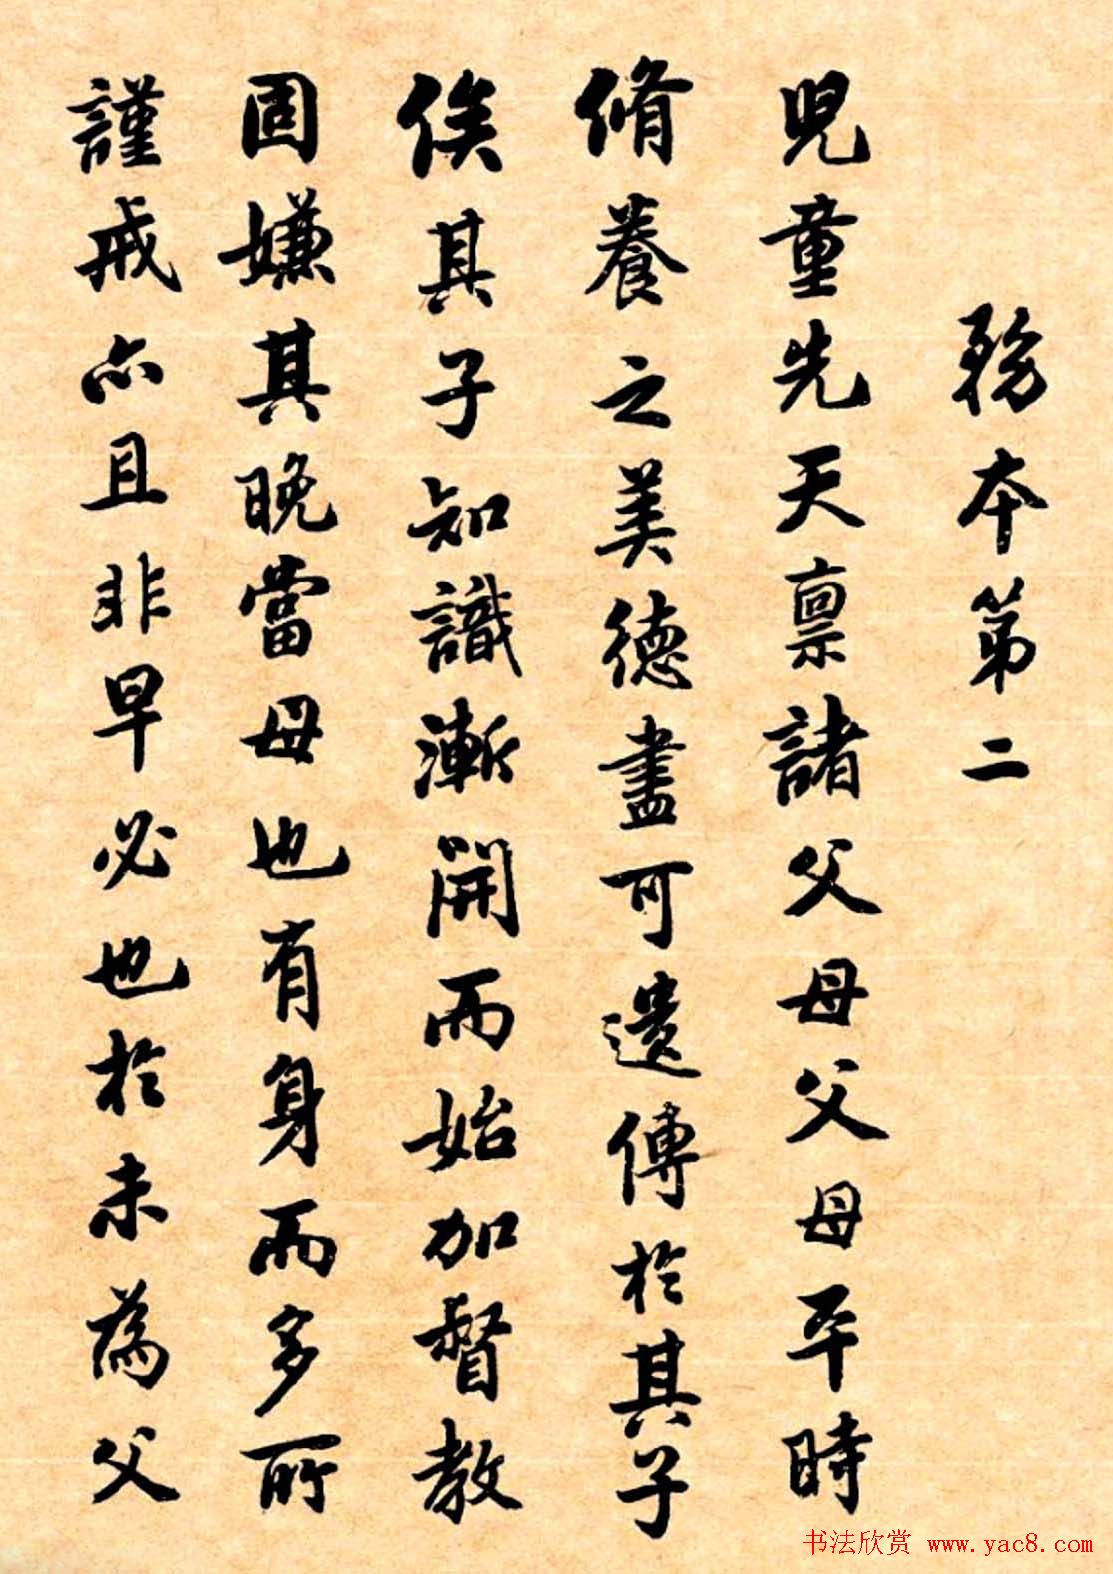 務本第二
兒童先天禀諸父母父母平時
脩養之美德盡可遺傳於其子
俟其子知識漸開而始加督教
固嫌其晚當母也有身而多所
謹戒亦且非早必也於未為父
书法欣赏 www.yac8.com